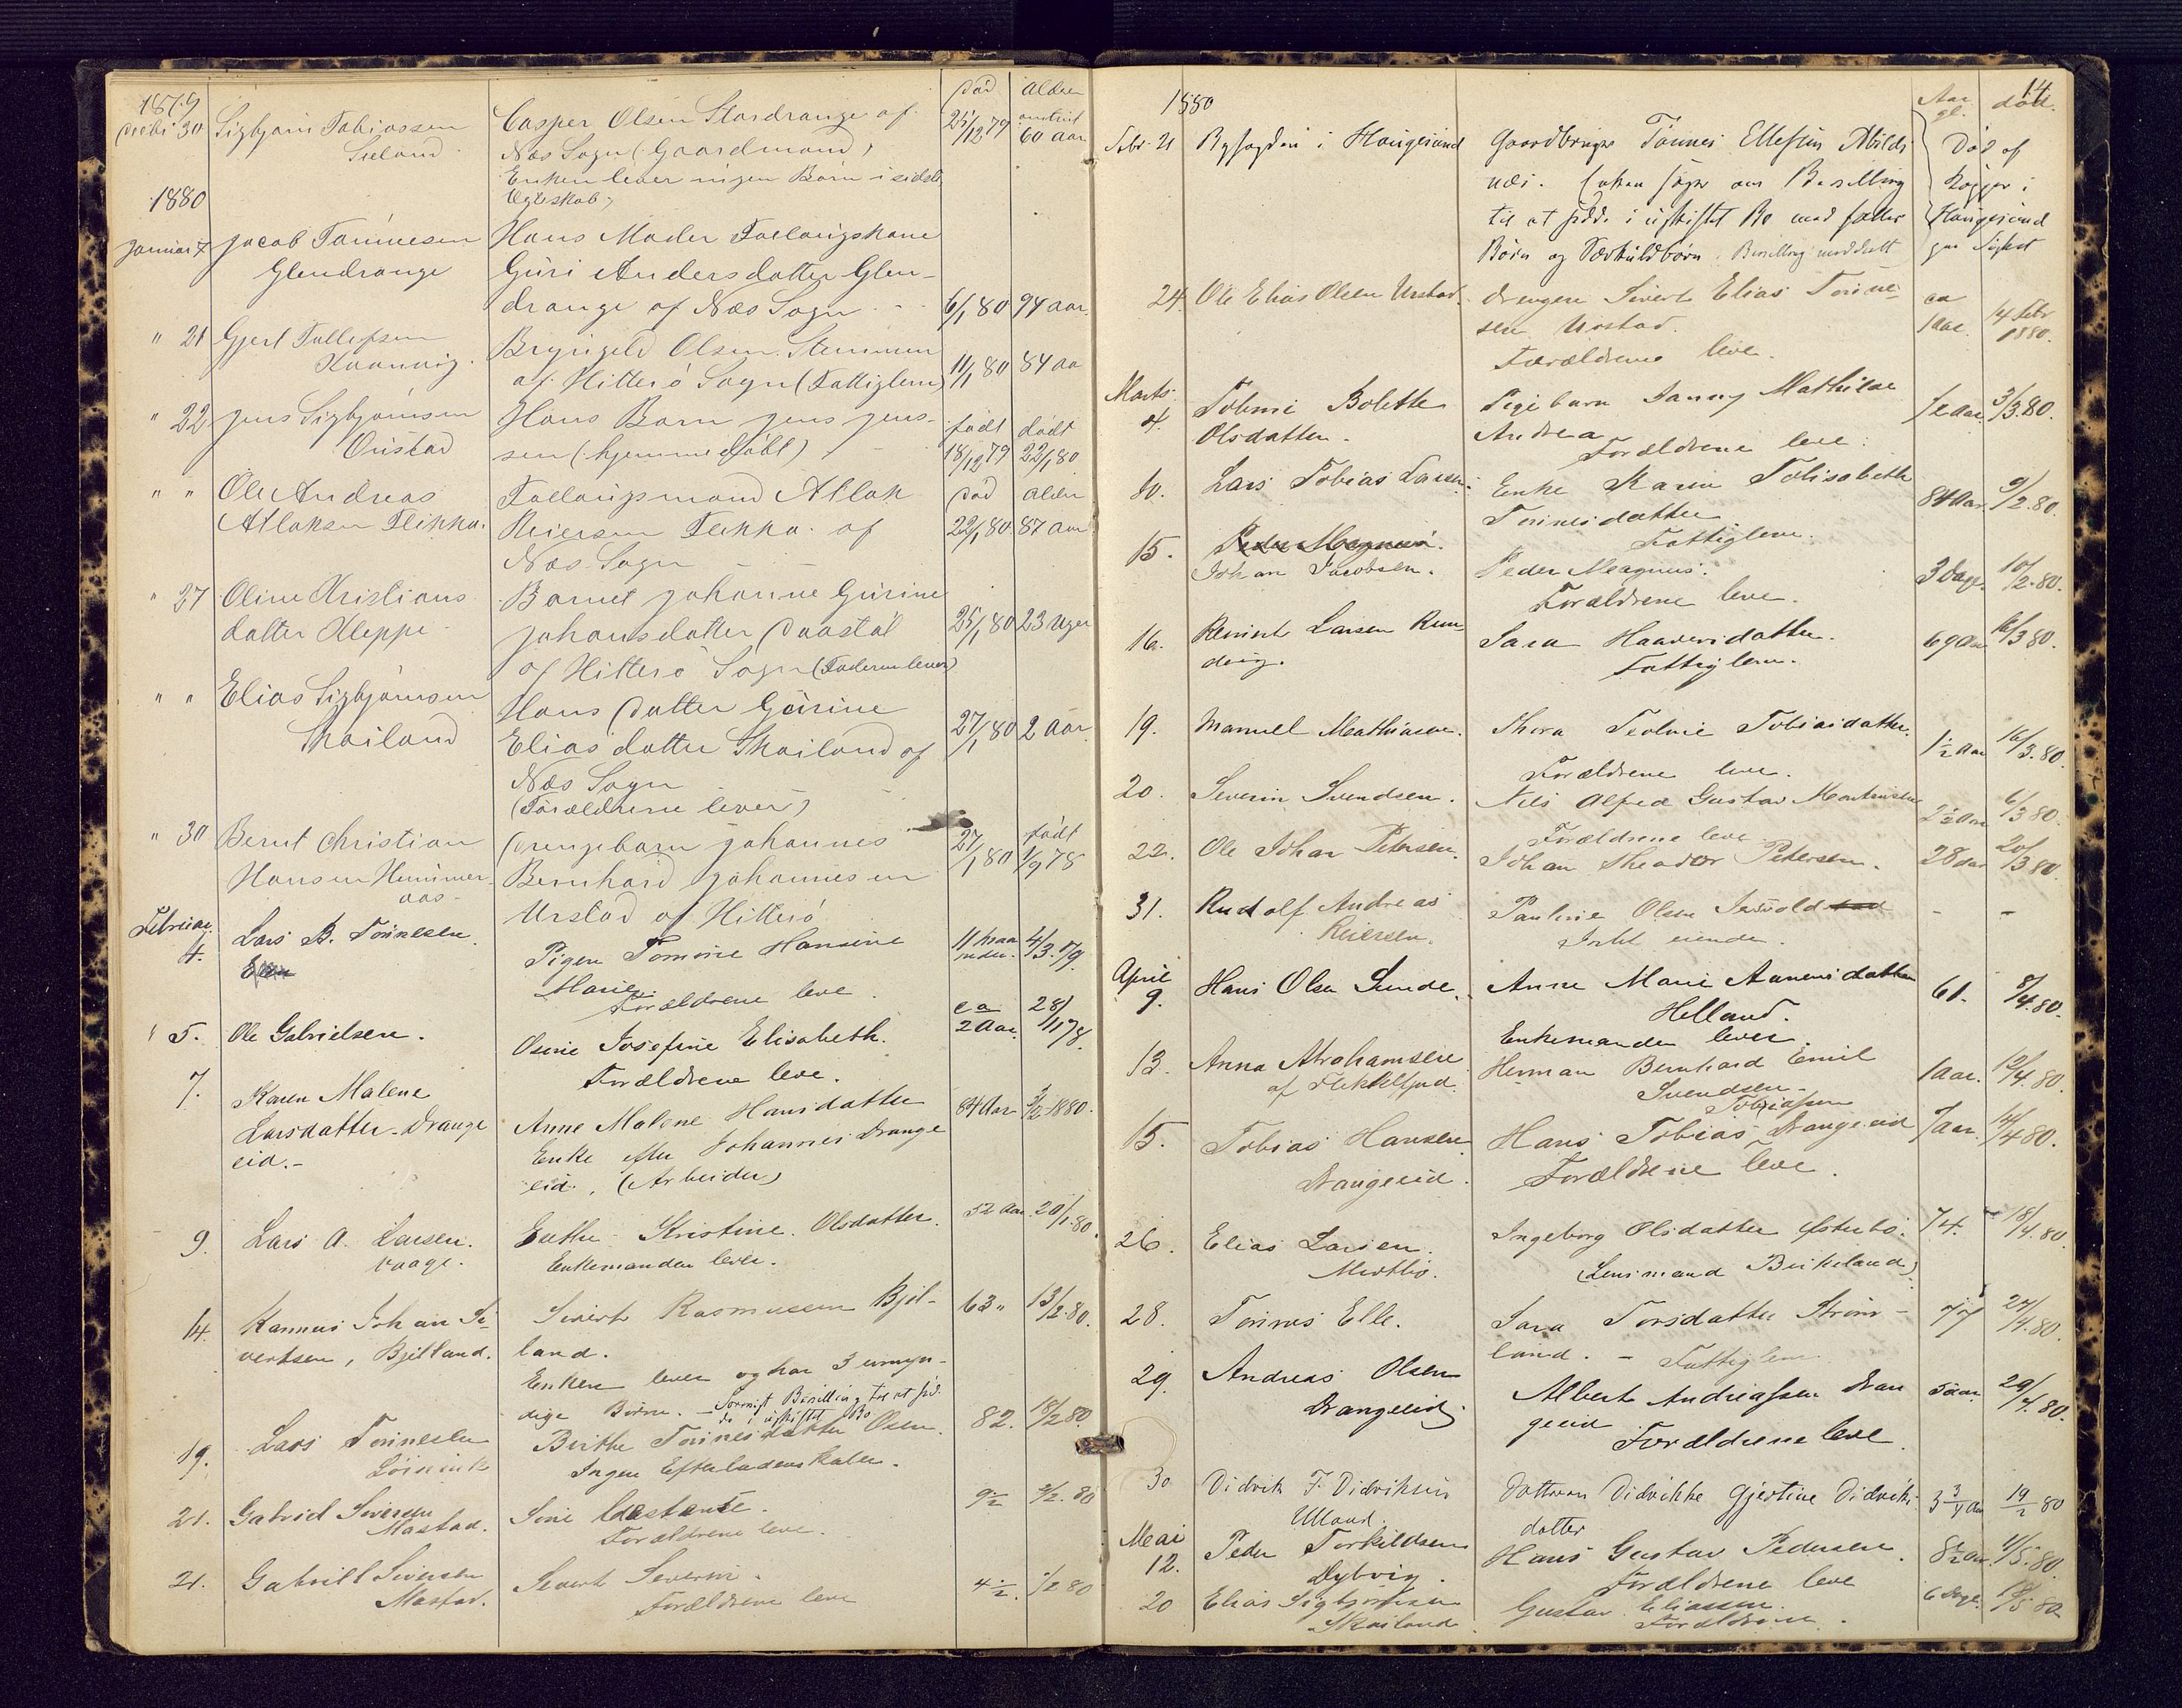 1879
Decbr 30 Sigbjørn Tobiassen Casper Olsen Stordrange af død alder
Seland. Næs Sogn (Gaardmand) 25/12 79 omtrent 60 aar
Enken lever ingen Børn i sidste
Egteskab,
1880
Januar 7 Jacob Tønnesen Hans Moder Follougskone
Glendrange Guri Andersdatter Glen-
drange af Næs Sogn 6/1 80 94 aar.
" 21 Gjert Tollefsen Bryngeld Olsen Stemmen
af Hitterö Sogn (Fattiglem) 11/1 80 84 aa
" 22 Jens Sigbjørnsen Hans Barn Jens Jens- født død
Ørstad sen (hjemmedøbt) 18/12 79 22/1 80
" " Ole Andreas Follougsmand Atlak død alder
Atlaksen Flikka. Reiersen Flikka af 22/1 80 87 aar
Næs Sogn
" 27 Oline Kristians Barnet Johanne Gurine
datter Kleppe Johansdatter Daastøl 25/1 80 23 Uger
af Hitterö Sogn (Faderen lever)
" " Elias Sigbjørnsen Hans Datter Gurine
Skailand Eliasdatter Skailand af 27/1 80 2 aar
Næs Sogn
(Forældrene lever)
" 30 Bernt Christian Drengebarn Johannes født
Hansen Hummer- Bernhard Johannesen 27/1 80 1/9 78
aas Urstad af Hitterö
Februar
4. Lars B. Tønnesen Pigen Tomine Hansine 11 maa 4/3 79
Marie. neder.
Forældrene leve.
" 5. Ole Gabrielsen. Osine Josefine Elisabeth. ca 2 Aar. 28/11 78
Forældrene leve.
7. Karen Malene Anne Malene Hansdatter 84 Aar 3/2 1880.
Larsdatter Drange Enke efter Johannes Drange
eid.- eid., (Arbeider)
9. Lars A. Larsen. Kristine Olsdatter. 52 Aar. 20/1 80.
Vaage. Enkemanden lever.
14. Rasmus Johan Si- Sivert Rasmussen Bjel- 63" 13/2 80.
vertsen, Bjelland. land.
Enken lever og har 3 umyn-
dige Børn. - Bevilling til at sid-
de i uskiftet Bo
19. Lars Tønnesen Birthe Tønnesdatter Osen. 82. 18/2 80
Ingen Efterladenskaber.
21. Gabriel Siversen Sine Constanse. 9 1/2 2/2. 80
Mastad. Forældrene leve.
21. Gabriel Siversen Sivert Severin. 4 1/2. /2 80
Mastad. Forældrene leve
14
1880 Aar gl. død.
Febr. 21 Byfogden i Haugesund Gaardbruger Tønnes Ellefsen Abilds Død af
næs. (Enken søger om Bevilling Kopper i
til at sidde i uskiftet Bo med fælles Haugesund
Børn og Særkuldbørn. Bevilling meddelt
24. Ole Elias Olsen Urstad. Drengen Sivert Elias Tønne- ca 14 Febr
sen Urstad. 1 aar 1880.
Forældrene leve.
Marts
4. Tobine Bolette Pigebarn Fanny Mathilde 1 Aar 3/3. 80.
Olsdatter. Andrea
Forældrene leve.
10. Lars Tobias Larsen. Enke Karen Tolisabeth 84 Aar. 9/2. 80.
Tønnesdatter
Fattiglem.
15. Peder Magnus.
Johan Jacobsen. Peder Magnus. 3 Dage. 10/2. 80.
Forældrene leve.
16. Reinert Larsen Sara Haaversdatter. 69 Aar 16/3 80.
Fattiglem.
19. Manuel Mathiasen. Thora Teoline Tobiasdatter. 1 1/2 Aar 16/3. 80.
Forældrene leve.
20. Severin Svendsen. Nils Alfred Gustav 2 1/2 Aar 6/3 80.
Forældrene leve
22. Ole Johan Petersen. Johan Theodor Petersen. 28 Aar 20/3 80.
31. Rudolf Andreas Pauline Olsen - -
Reiersen. Intet eiende.
April
9. Hans Olsen Sunde. Anne Marie Aanensdatter 61. 8/4. 80.
Helland.
Enkemanden lever.
13. Anna Abrahamsen Herman Bernhard Emil 1 aar. 12/4. 80.
af Flekkefjord. Svendsen.
15. Tobias Hansen Hans Tobias Tobiassen Drangeeid 7 aar. 14/4 80.
Drangeeid. Forældrene leve.
26. Elias Larsen. Ingeborg Olsdatter Østebö. 74. 18/4. 80.
(Lensmand Birkeland)
28. Tønnes Elle. Sara Torsdatter Strøm- 77 27/4. 80.
land. - Fattiglem
29. Andreas Olsen Albert Andreassen Dran 5 aar 29/4. 80.
Drangeeid geeid
Forældrene leve.
30 Didrik F. Didriksen Datteren Didrikke Gjertine Didriks 3 3/4 Aar 19/2 80
Ulland. datter
Mai
12. Peder Torkildsen Hans Gustav Pedersen. 8 1/2 Aar. 4/5. 80.
Dybvig. Forældrene leve
20 Elias Sigbjørnsen Gustav Eliassen. 6 Dage. 18/5 80
Skailand. Forældrene.